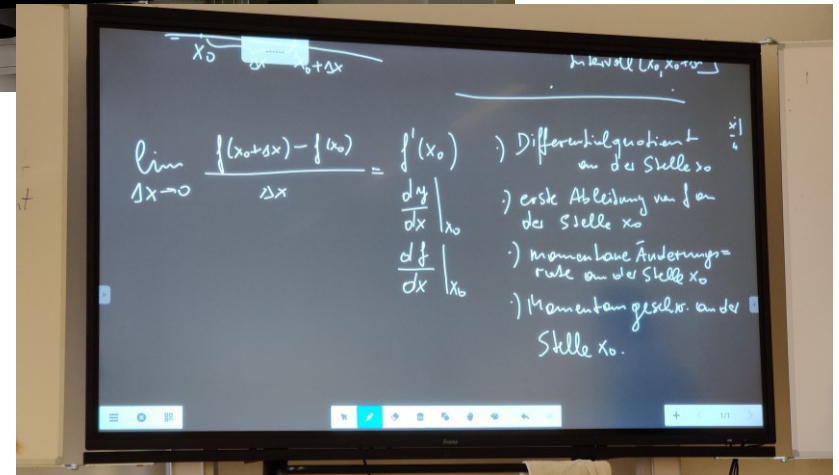 x₀ Δx x₀+Δx
Intervall [x₀, x₀+Δx]
lim Δx→0 f(x₀+Δx) − f(x₀) / Δx = f'(x₀)
dy/dx |x₀
df/dx |x₀
·) Differentialquotient
an der Stelle x₀
·) erste Ableitung von f an
der Stelle x₀
·) momentane Änderungs=
rate an der Stelle x₀
·) Momentangeschw. an der
Stelle x₀.
1/1